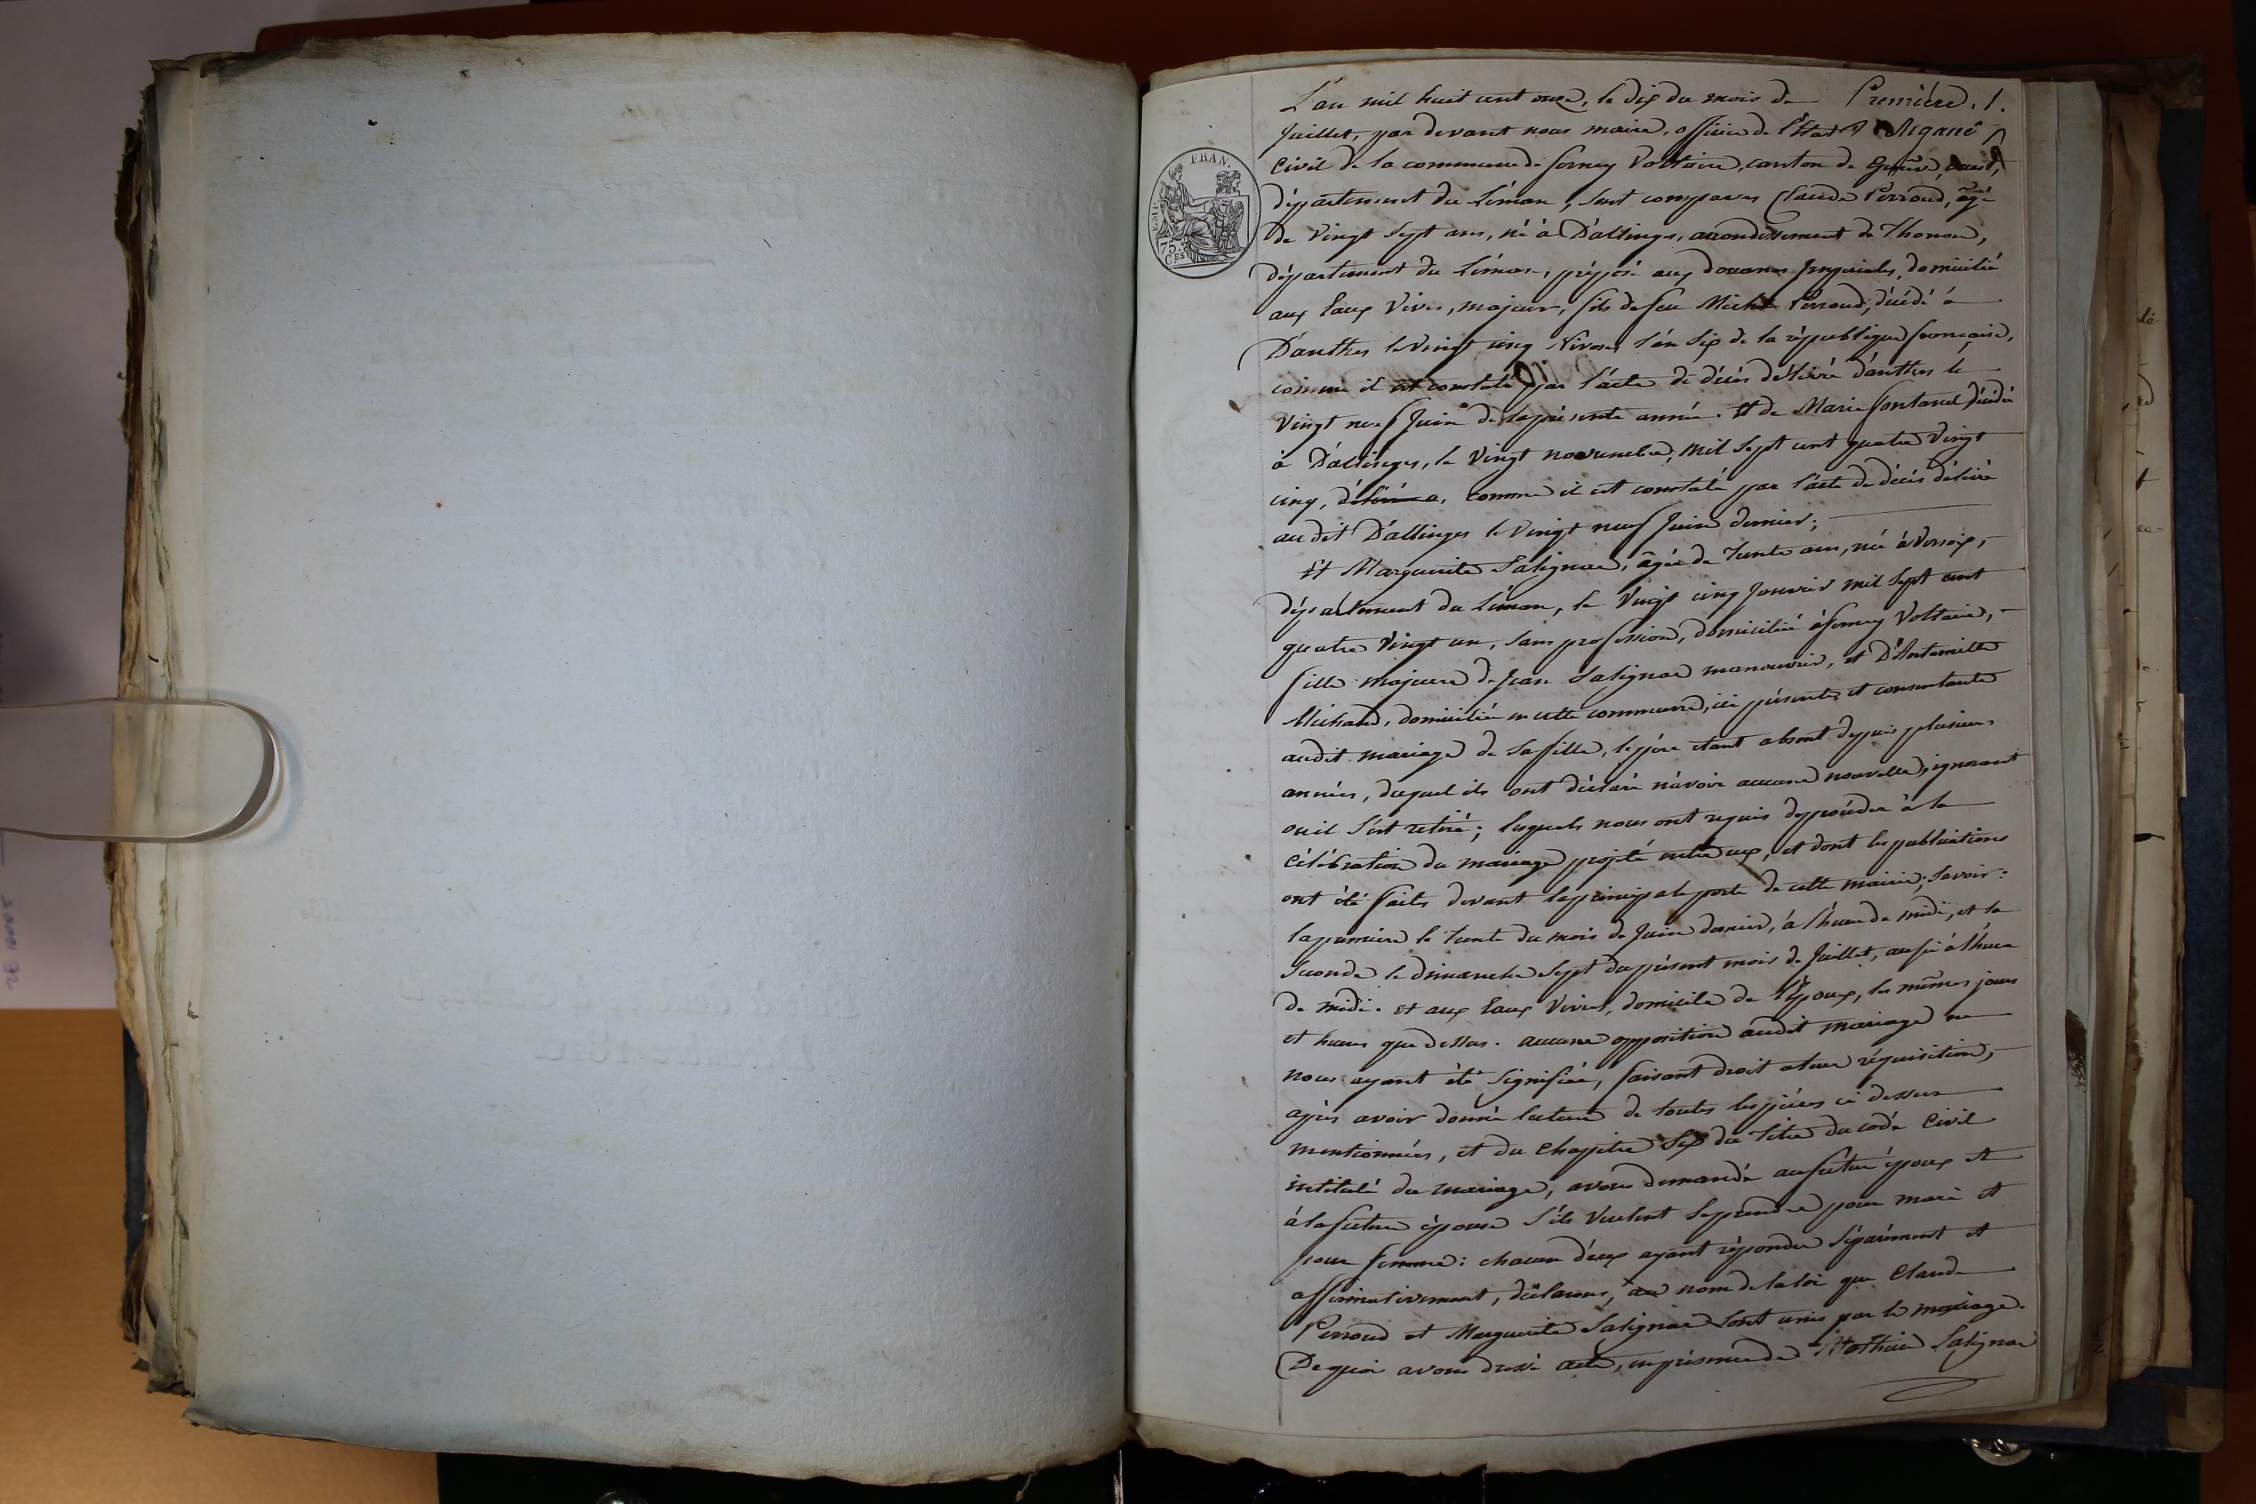 L'an mil huit cent onze, le dix du mois de Première. 1.
Juillet, par devant nous maire, officier de l'Etat
Civil de la commune de ferney Voltaire, canton de
département du Léman, sont comparus Claude Perroud, âgé
de Vingt Sept ans, né à D'allinges, arrondissement de Thonon,
département du Léman, préposé aux douanes Impériales, domicilié
aux Eaux Vives, majeur, fils de feu Michel Perroud, décédé à
D'anthes le Vingt cinq Nivose, l'an Six de la république françoise,
comme il est constaté par l'acte de décès délivré d'anthes le
Vingt neuf Juin de la présente année. Et de Marie fontanel décédée
à D'allinges, le Vingt novembre, mil Sept cent quatre Vingt
cinq, comme il est constaté par l'acte de décès délivré
au dit D'allinges le Vingt neuf Juin dernier;
Et Marguerite Salignac, âgée de Trente ans, née à Versoix,
département du Léman, le Vingt cinq Janvier mil Sept cent
quatre Vingt un, sans profession, domiciliée à ferney Voltaire,
fille majeure de Jean Salignac manouvrier, et D'Antoinette
Michaud, domiciliée en cette commune, ici présente et consentante
audit mariage de sa fille, le père étant absent depuis plusieurs
années, duquel ils ont déclaré n'avoir aucune nouvelle, ignorant
ou il s'est retiré; lesquels nous ont requis de procéder à la
Célébration du mariage projeté entre eux, et dont les publications
ont été faites devant la principale porte de cette mairie; Savoir:
la premiere le trente du mois de Juin dernier, à l'heure de midi, et la
Seconde le dimanche Sept du présent mois de Juillet, aussi à l'heure
de midi. et aux Eaux Vives, domicile de l'Époux, les mêmes jours
et heures que dessus. aucune opposition audit mariage ne
nous ayant été Signifiée, faisant droit a leur réquisition,
après avoir donné lecture de toutes les pièces ci dessus
mentionnées, et du Chapitre Six du Titre du code Civil
intitulé du mariage, avons demandé au futur époux et
à la future épouse S'ils Veulent se prendre pour mari et
pour femme: chacun d'eux ayant répondu Séparément et
affirmativement, déclarons, au nom de la loi que Claude
Perroud et Marguerite Salignac sont unis par le mariage.
De quoi avons dressé acte, en présence de Mathieu Salignac
FRAN.
75
C.ES